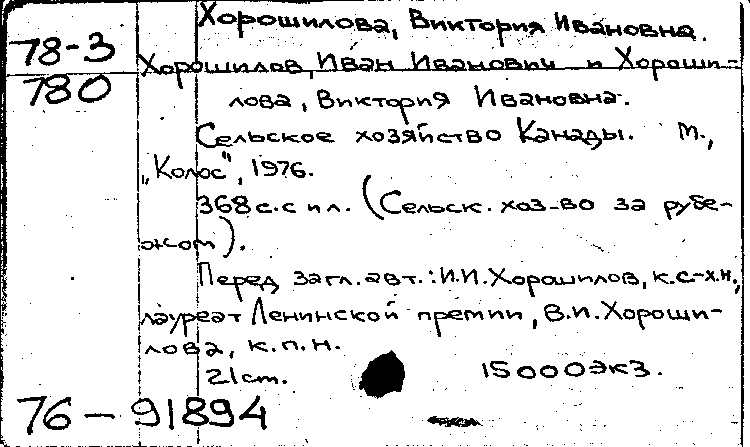 Хорошилова, Виктория Ивановна.
78-3
Хорошилов, Иван Иванович и Хороши-
780
лова, Виктория Ивановна.
Сельское хозяйство Канады. М.,
„Колос", 1976.
368 с. с ил. (Сельск. хоз-во за рубе-
жом).
Перед загл. авт.: И.И. Хорошилов, к.с-х.н.,
лауреат Ленинской премии, В.И. Хороши-
лова, к.п.н.
21 cm. 15000 экз.
76-91894